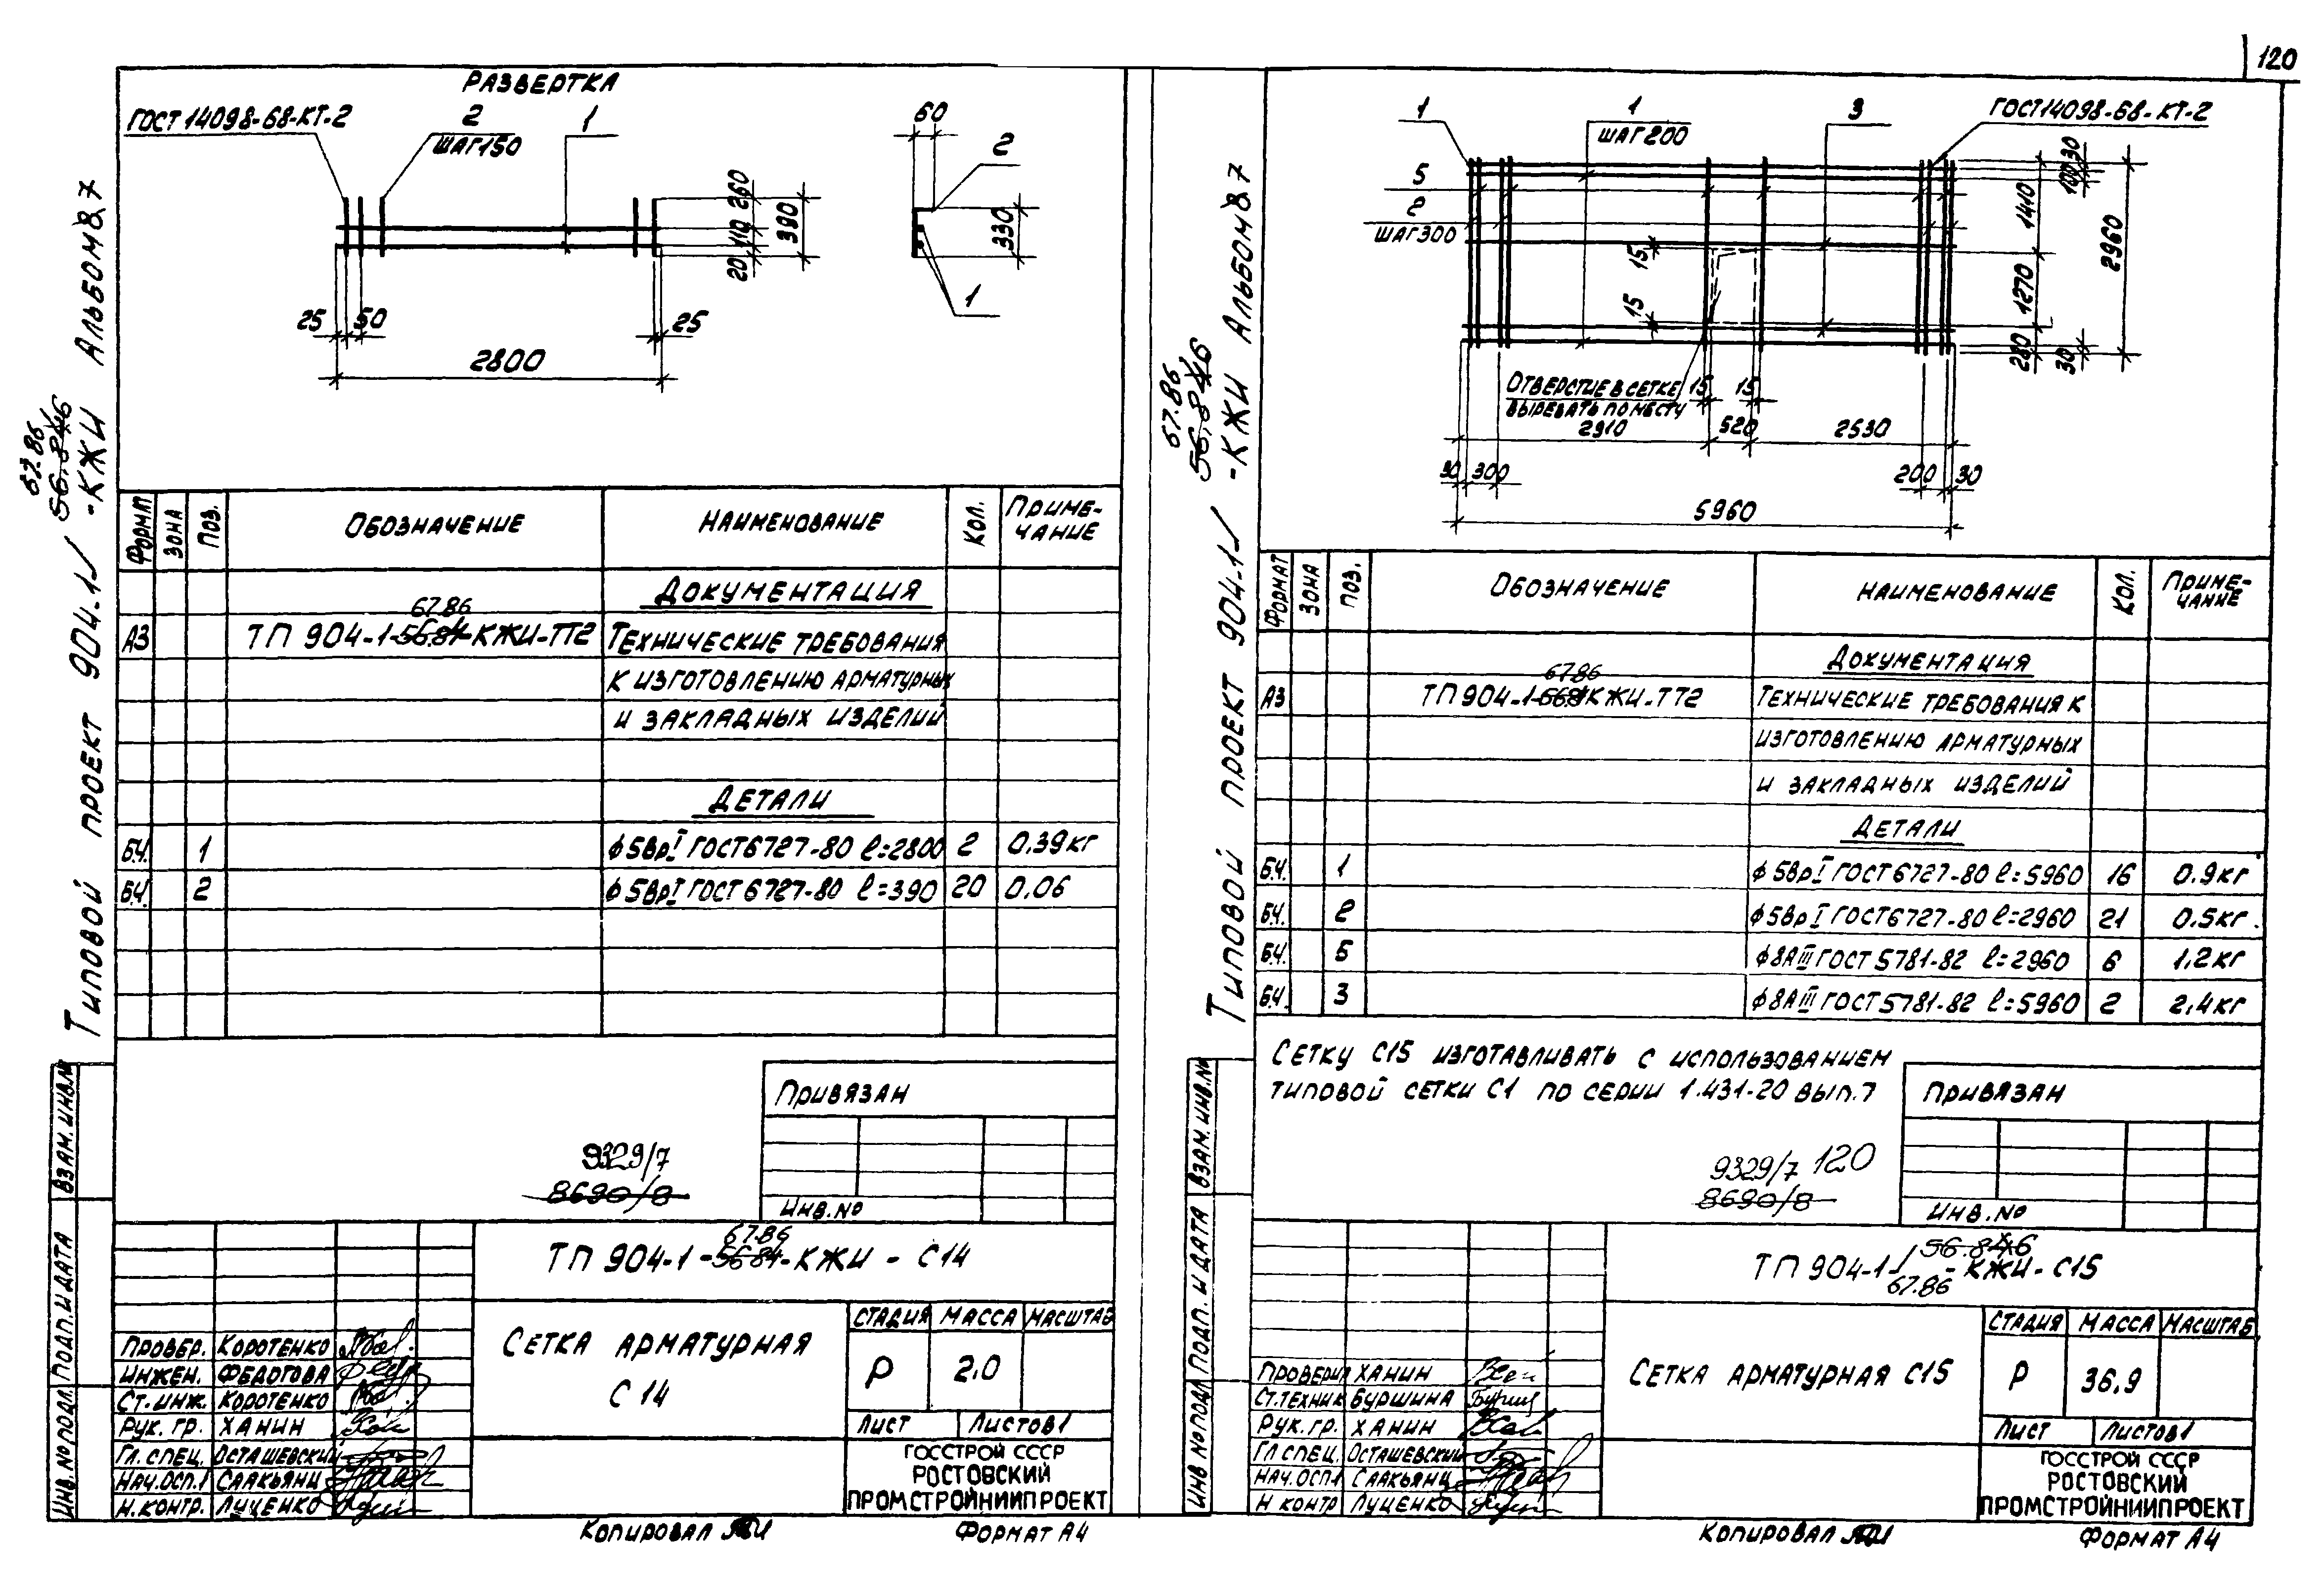 120
РАЗВЕРТКА
ГОСТ 14098-68-КТ-2
2
ШАГ150
1
60
2
260
110
20
390
330
1
25
50
25
2800
Типовой проект 904-1
-КЖИ Альбом 7
67.86
ФОРМАТ
ЗОНА
ПОЗ.
ОБОЗНАЧЕНИЕ
НАИМЕНОВАНИЕ
КОЛ.
ПРИМЕ-
ЧАНИЕ
ДОКУМЕНТАЦИЯ
67.86
А3 ТП 904-1-56.84-КЖИ-ТТ2 ТЕХНИЧЕСКИЕ ТРЕБОВАНИЯ
К ИЗГОТОВЛЕНИЮ АРМАТУРНЫХ
И ЗАКЛАДНЫХ ИЗДЕЛИЙ
ДЕТАЛИ
БЧ. 1 ϕ5ВрI ГОСТ6727-80 ℓ=2800 2 0.39кг
БЧ. 2 ϕ5ВрI ГОСТ6727-80 ℓ=390 20 0.06
ПРИВЯЗАН
9329/7
8690/8
ИНВ.No
67.86
ТП 904-1-56.84-КЖИ - С14
СЕТКА АРМАТУРНАЯ
С 14
СТАДИЯ МАССА МАСШТАБ
Р 2.0
ЛИСТ ЛИСТОВ 1
ГОССТРОЙ СССР
РОСТОВСКИЙ
ПРОМСТРОЙНИИПРОЕКТ
ПРОВЕР. КОРОТЕНКО
ИНЖЕН. ФЕДОТОВА
СТ.ИНЖ. КОРОТЕНКО
РУК. ГР. ХАНИН
ГЛ.СПЕЦ. ОСТАШЕВСКИЙ
НАЧ.ОСП.1 СААКЬЯНЦ
Н.КОНТР. ЛУЦЕНКО
ИНВ.No ПОДЛ. ПОДП. И ДАТА ВЗАМ.ИНВ.No
КОПИРОВАЛ
ФОРМАТ А4
1
1
ШАГ200
3
ГОСТ14098-68-КТ-2
5
2
ШАГ300
30
100
1410
1270
280
30
2960
15
15
ОТВЕРСТИЕ В СЕТКЕ
ВЫРЕЗАТЬ ПО МЕСТУ
15
15
2910
520
2530
30
300
200
30
5960
Типовой проект 904-1
-КЖИ Альбом 7
67.86
ФОРМАТ
ЗОНА
ПОЗ.
ОБОЗНАЧЕНИЕ
НАИМЕНОВАНИЕ
КОЛ.
ПРИМЕ-
ЧАНИЕ
ДОКУМЕНТАЦИЯ
67.86
А3 ТП 904-1-56.84КЖИ-ТТ2 ТЕХНИЧЕСКИЕ ТРЕБОВАНИЯ К
ИЗГОТОВЛЕНИЮ АРМАТУРНЫХ
И ЗАКЛАДНЫХ ИЗДЕЛИЙ
ДЕТАЛИ
БЧ. 1 ϕ5ВрI ГОСТ6727-80 ℓ=5960 16 0.9кг
БЧ. 2 ϕ5ВрI ГОСТ6727-80 ℓ=2960 21 0.5кг.
БЧ. 5 ϕ8АIII ГОСТ 5781-82 ℓ=2960 6 1.2кг
БЧ. 3 ϕ8АIII ГОСТ5781-82 ℓ=5960 2 2.4кг
СЕТКУ С15 ИЗГОТАВЛИВАТЬ С ИСПОЛЬЗОВАНИЕМ
ТИПОВОЙ СЕТКИ С1 ПО СЕРИИ 1.431-20 ВЫП.7
ПРИВЯЗАН
9329/7 120
8690/8
ИНВ.No
ТП 904-1 - КЖИ - С15
67.86
СЕТКА АРМАТУРНАЯ С15
СТАДИЯ МАССА МАСШТАБ
Р 36.9
ЛИСТ ЛИСТОВ 1
ГОССТРОЙ СССР
РОСТОВСКИЙ
ПРОМСТРОЙНИИПРОЕКТ
ПРОВЕРИЛ ХАНИН
СТ.ТЕХНИК БУРШИНА
РУК. ГР. ХАНИН
ГЛ.СПЕЦ. ОСТАШЕВСКИЙ
НАЧ.ОСП.1 СААКЬЯНЦ
Н КОНТР ЛУЦЕНКО
ИНВ No ПОДЛ ПОДП. И ДАТА ВЗАМ.ИНВ.No
КОПИРОВАЛ
ФОРМАТ А4